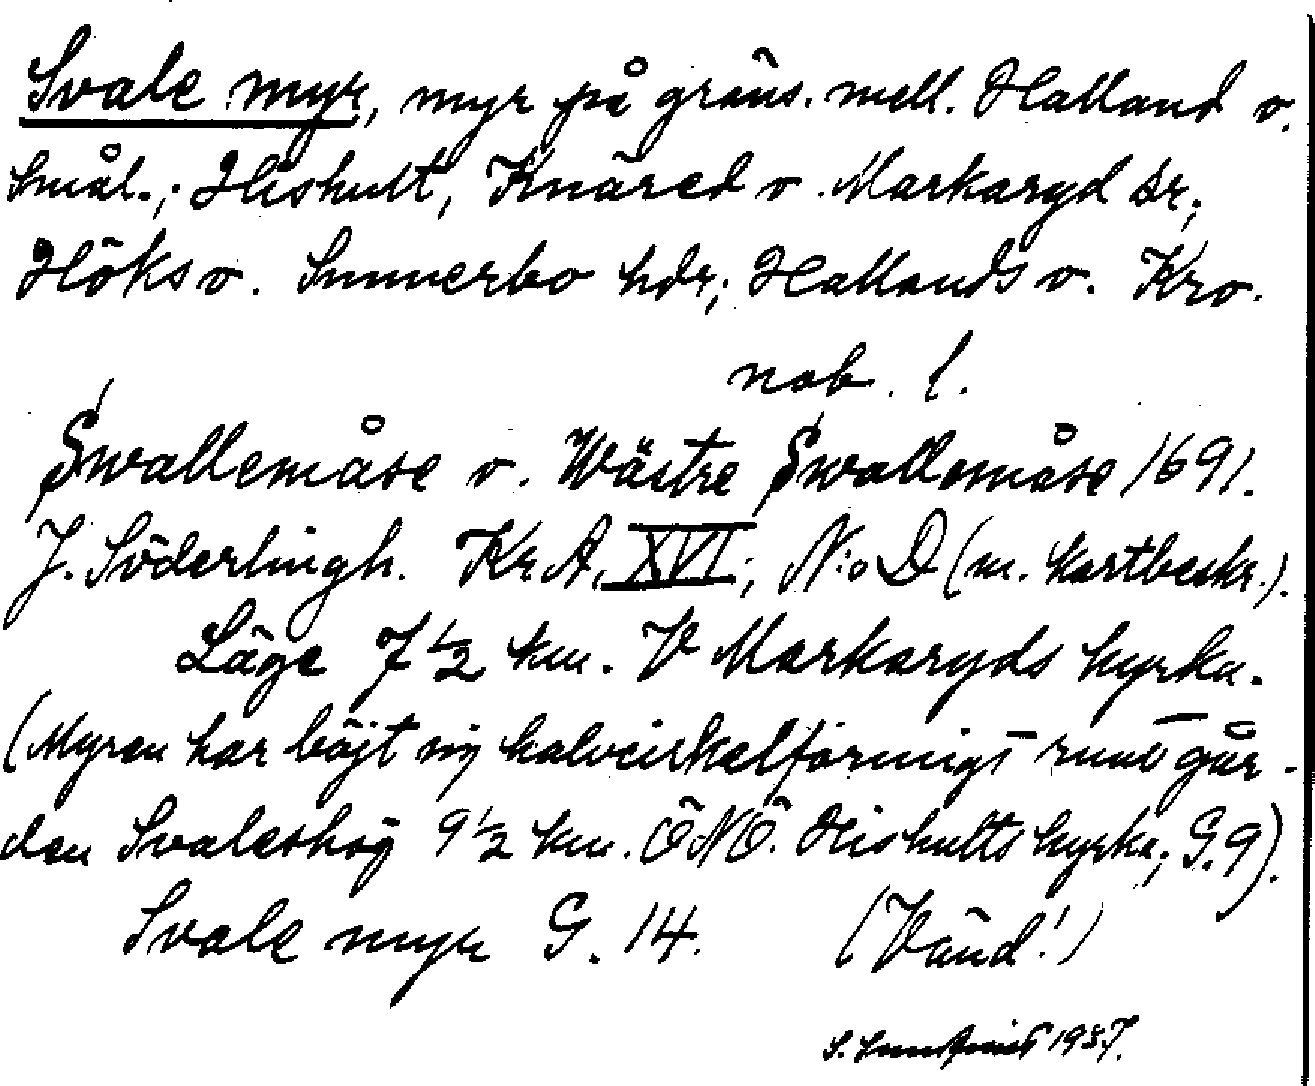 Svale myr, myr på gräns. mell. Halland o.
Smål.; Hishult, Knäred o. Markaryd sr;
Höks o. Sunnerbo hdr; Hallands o. Kro-
nob. l.
Swallemåse o. Wästre Swallemåse 1691.
J. Söderlingh. Kr. A. XVI; N:o D (m. kartbeskr.).
Läge 7 1/2 km. V Markaryds kyrka.
(Myren har böjt sig halvcirkelformigt runt går-
den Svaleshög 9 1/2 km. ÖNÖ. Hishults kyrka; G. 9).
Svale myr G. 14. (Vänd!)
1937.